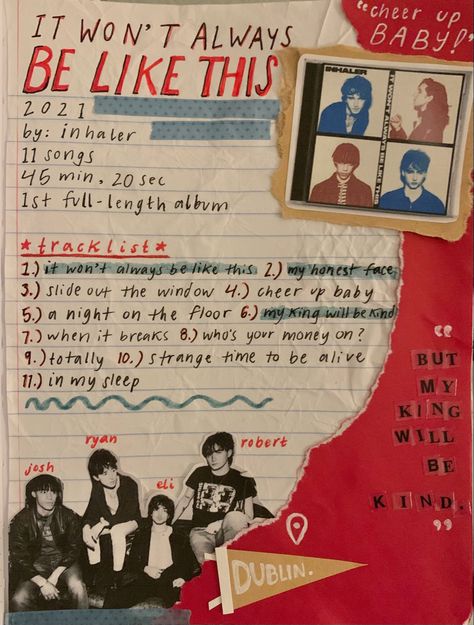 IT WON'T ALWAYS
BE LIKE THIS
"cheer up
BABY!"
2021
by: inhaler
11 songs
45 min, 20 sec
1st full-length album
INHALER
IT WON'T ALWAYS BE LIKE THIS
*tracklist*
1.) it won't always be like this 2.) my honest face
3.) slide out the window 4.) cheer up baby
5.) a night on the floor 6.) my king will be kind
7.) when it breaks 8.) who's your money on?
9.) totally 10.) strange time to be alive
11.) in my sleep
"BUT
MY
KING
WILL
BE
KIND."
josh
ryan
eli
robert
DUBLIN.